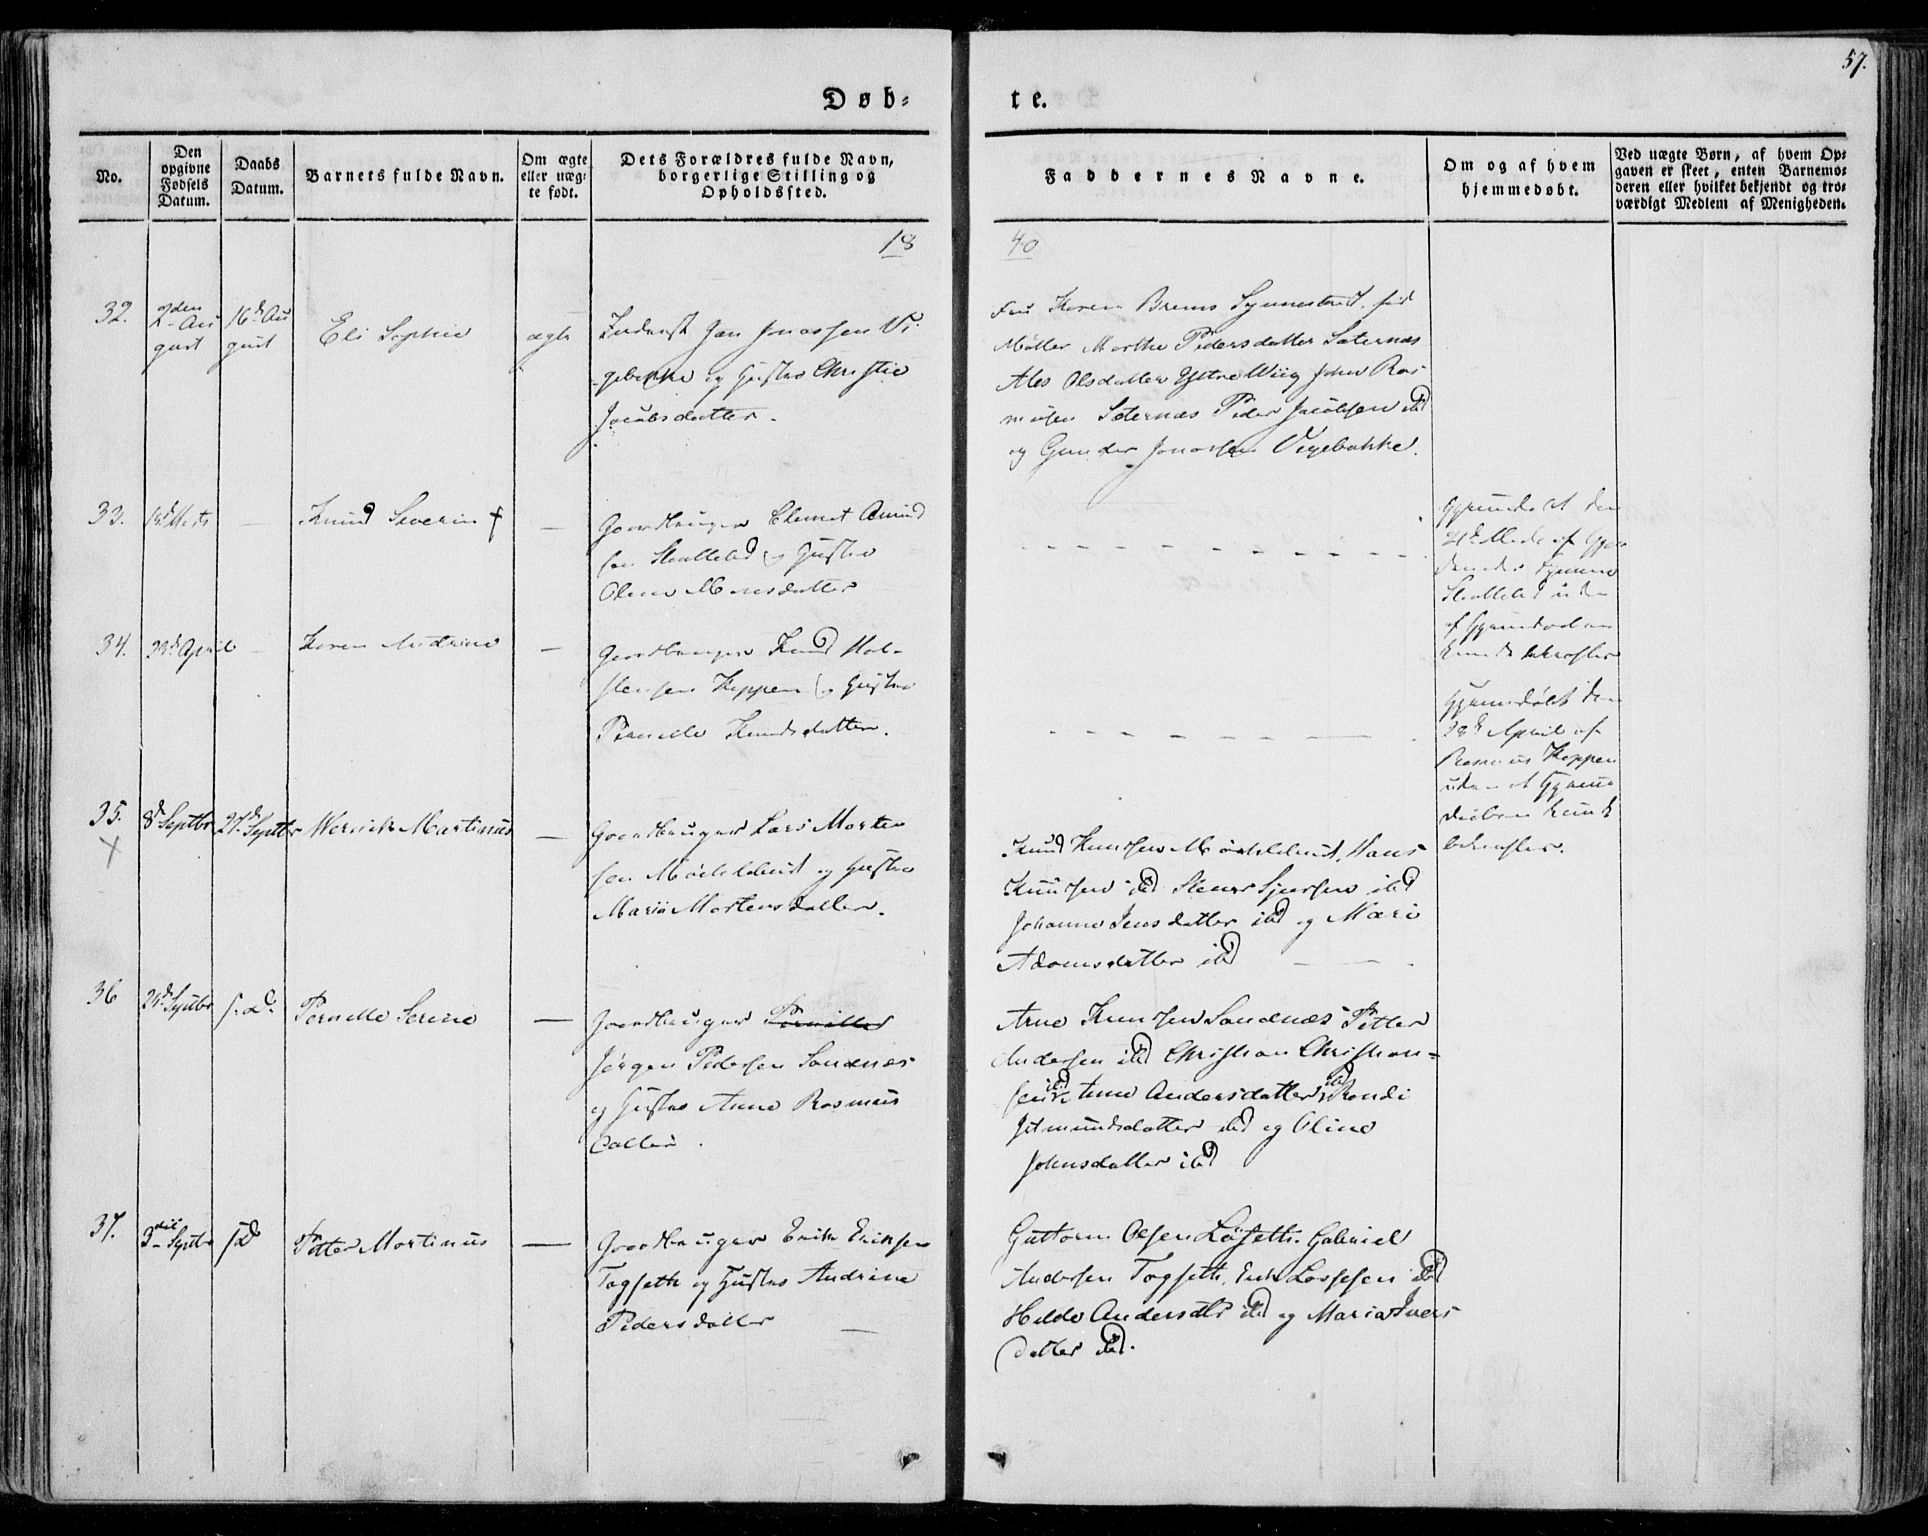 57.
Døb=
te.
No.
Den
opgivne
Fødsels
Datum.
Daabs
Datum.
Barnets fulde Navn.
Om ægte
eller uæg-
te født.
Dets Forældres fulde Navn,
borgerlige Stilling og
Opholdssted.
Faddernes Navne.
Om og af hvem
hjemmedøbt.
Ved uægte Børn, af hvem Op=
gaven er skeet, enten Barnemo=
deren eller hvilket bekjendt og tro=
værdigt Medlem af Menigheden.
18
40
32.
2den Au
gust
16d Au
gust
Eli Sophie
ægte
Jan Jonassen Vi
gebakke og Hustro Christie
Jacobsdatter.
Fru Karen Brems Synnestvedt, fød
Møller Marthe Pedersdatter Saternæs
Ales Olsdatter Ystre Wiig John Ras
musen Saternæs Peder Jacobsen ibid
og Gunder Jonassen Vigebakke.
33.
Marts
—
Knud Severin †
—
Gaardbruger Clemet Amund
sen og Hustro
Olene Monsdatter
Hjemdøbt den
34.
23d April
—
Karen Andrine
—
Gaardbruger Knud Hol-
stensen Keppen og Hustro
Pernille Knudsdatter.
Hjemmedøbt den
April af
Rasmus Keppen
uden at Hjemme
daaben kunde
bekræftes.
35.
8d Septbr
27d Septbr
Martinus
—
Gaardbruger Lars Morten
sen og Hustro
Marie Mortensdatter.
Knud Knudsen Hans
Knudsen ibid Stener Sjursen ibid
Johanne Jensdatter ibid og Mari
Adamsdatter ibid
36
Septbr
s. D.
Pernelle Serine
—
Gaardbruger Pernille
Jørgen Pedersen Sandnæs
og Hustro Anne Rasmus
datter.
Arne Knudsen Sandnæs Petter
Andersen ibid Christian Christian=
sen ibid Anne Andersdatter ibid Randi
Jetmundsdatter ibid og Oline
Johnsdatter ibid
37.
3die Septbr
s D
Petter Martinus
—
Gaardbruger Erik Eriksen
Tagseth og Hustro Andrine
Pedersdatter
Guttorm Olsen Løseth. Gabriel
Andersen Tagseth, Erik Lassesen ibid
Helde Andersdtr ibid og Maria Ivers
datter ibid.